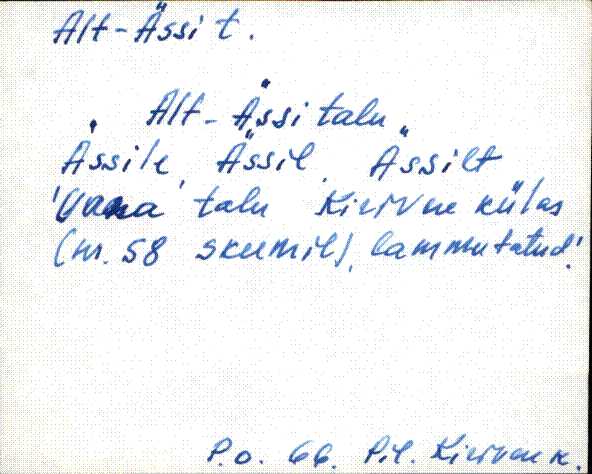 Alt-Ässi t.
Alt-Ässi talu,
Ässile, Ässil, Ässilt
'Vana talu Kirivere külas
(nr. 58 skeemil), lammutatud.'
P.o. 66. Pil. Kirivere k.